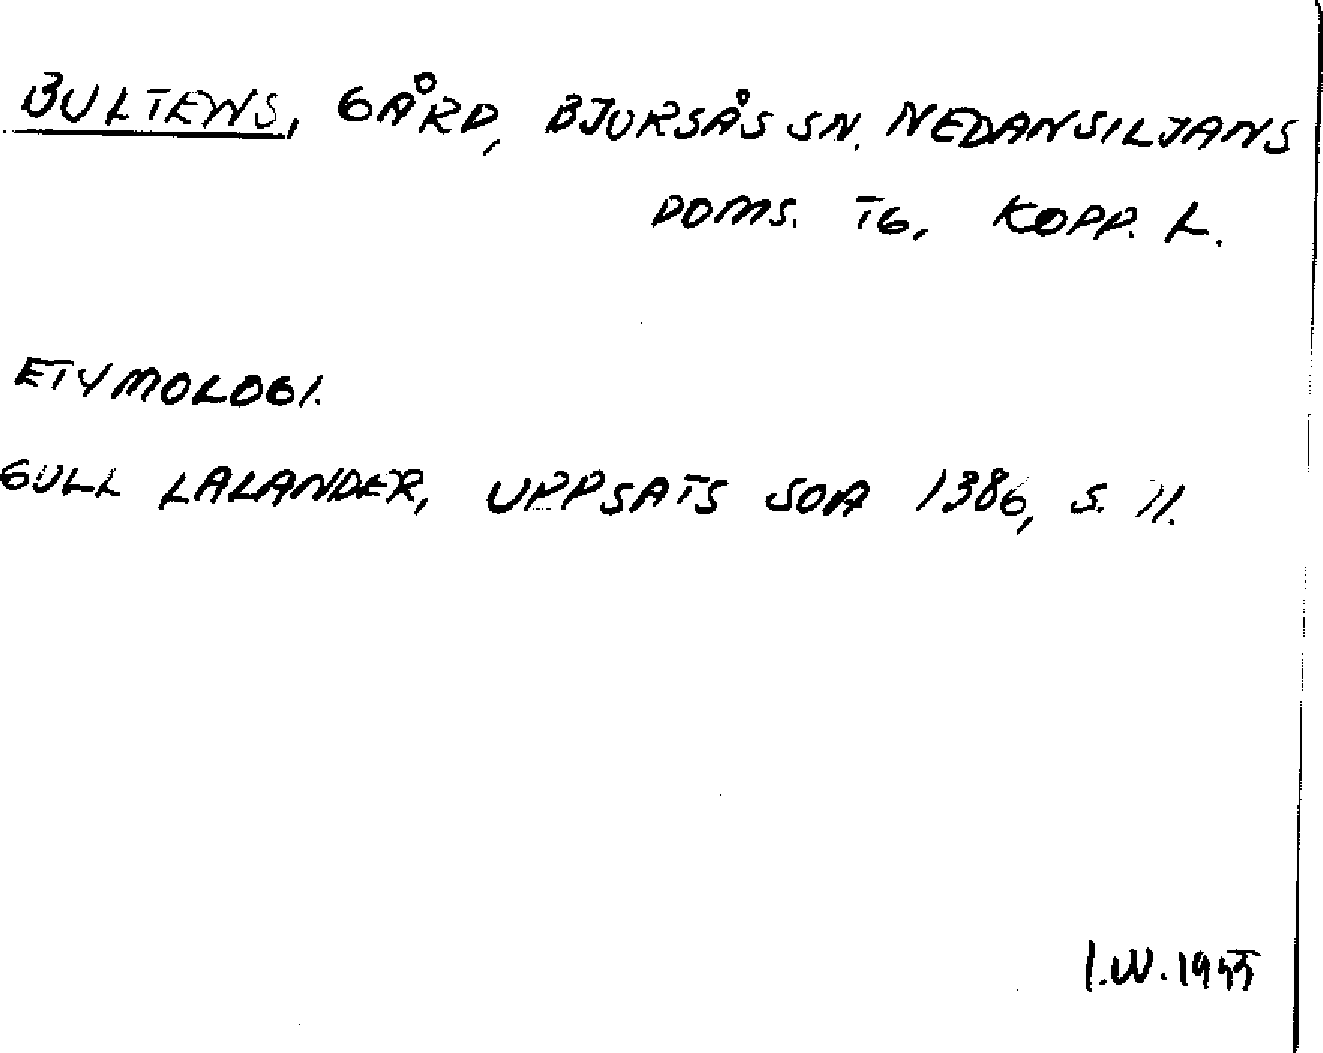 BULTENS, GÅRD, BJURSÅS SN. NEDANSILJANS
DOMS. TG, KOPP. L.
ETYMOLOGI.
GULL LALANDER, UPPSATS SOA 1386, S. 11.
I.W. 1955